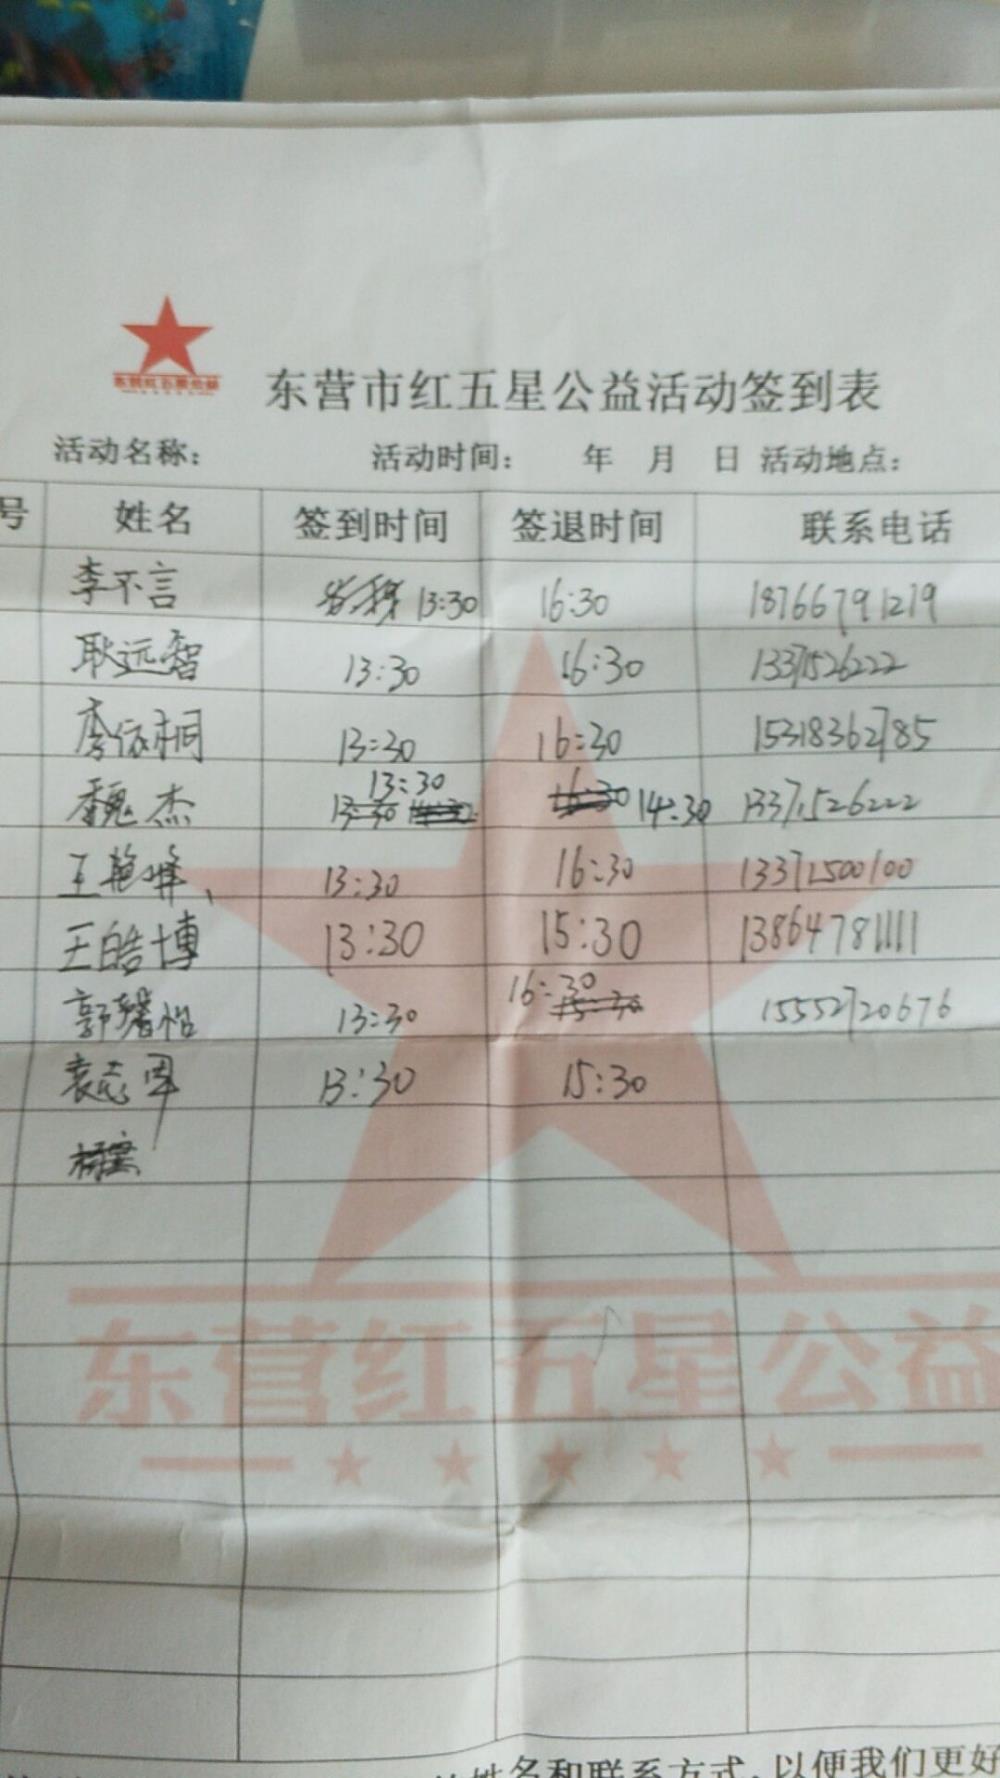 东营红五星公益
东营市红五星公益活动签到表
活动名称： 活动时间： 年 月 日 活动地点：
号 姓名 签到时间 签退时间 联系电话
李不言 13:30 16:30 18766791219
耿远智 13:30 16:30 13371526222
李依桐 13:30 16:30 15318362785
13:30
魏杰 13:30 14:30 13371526222
王艳峰、 13:30 16:30 13371500100
王皓博 13:30 15:30 13864781111
16:30
郭馨怡 13:30 15:30 15552720676
袁志恩 13:30 15:30
东营红五星公益
姓名和联系方式，以便我们更好